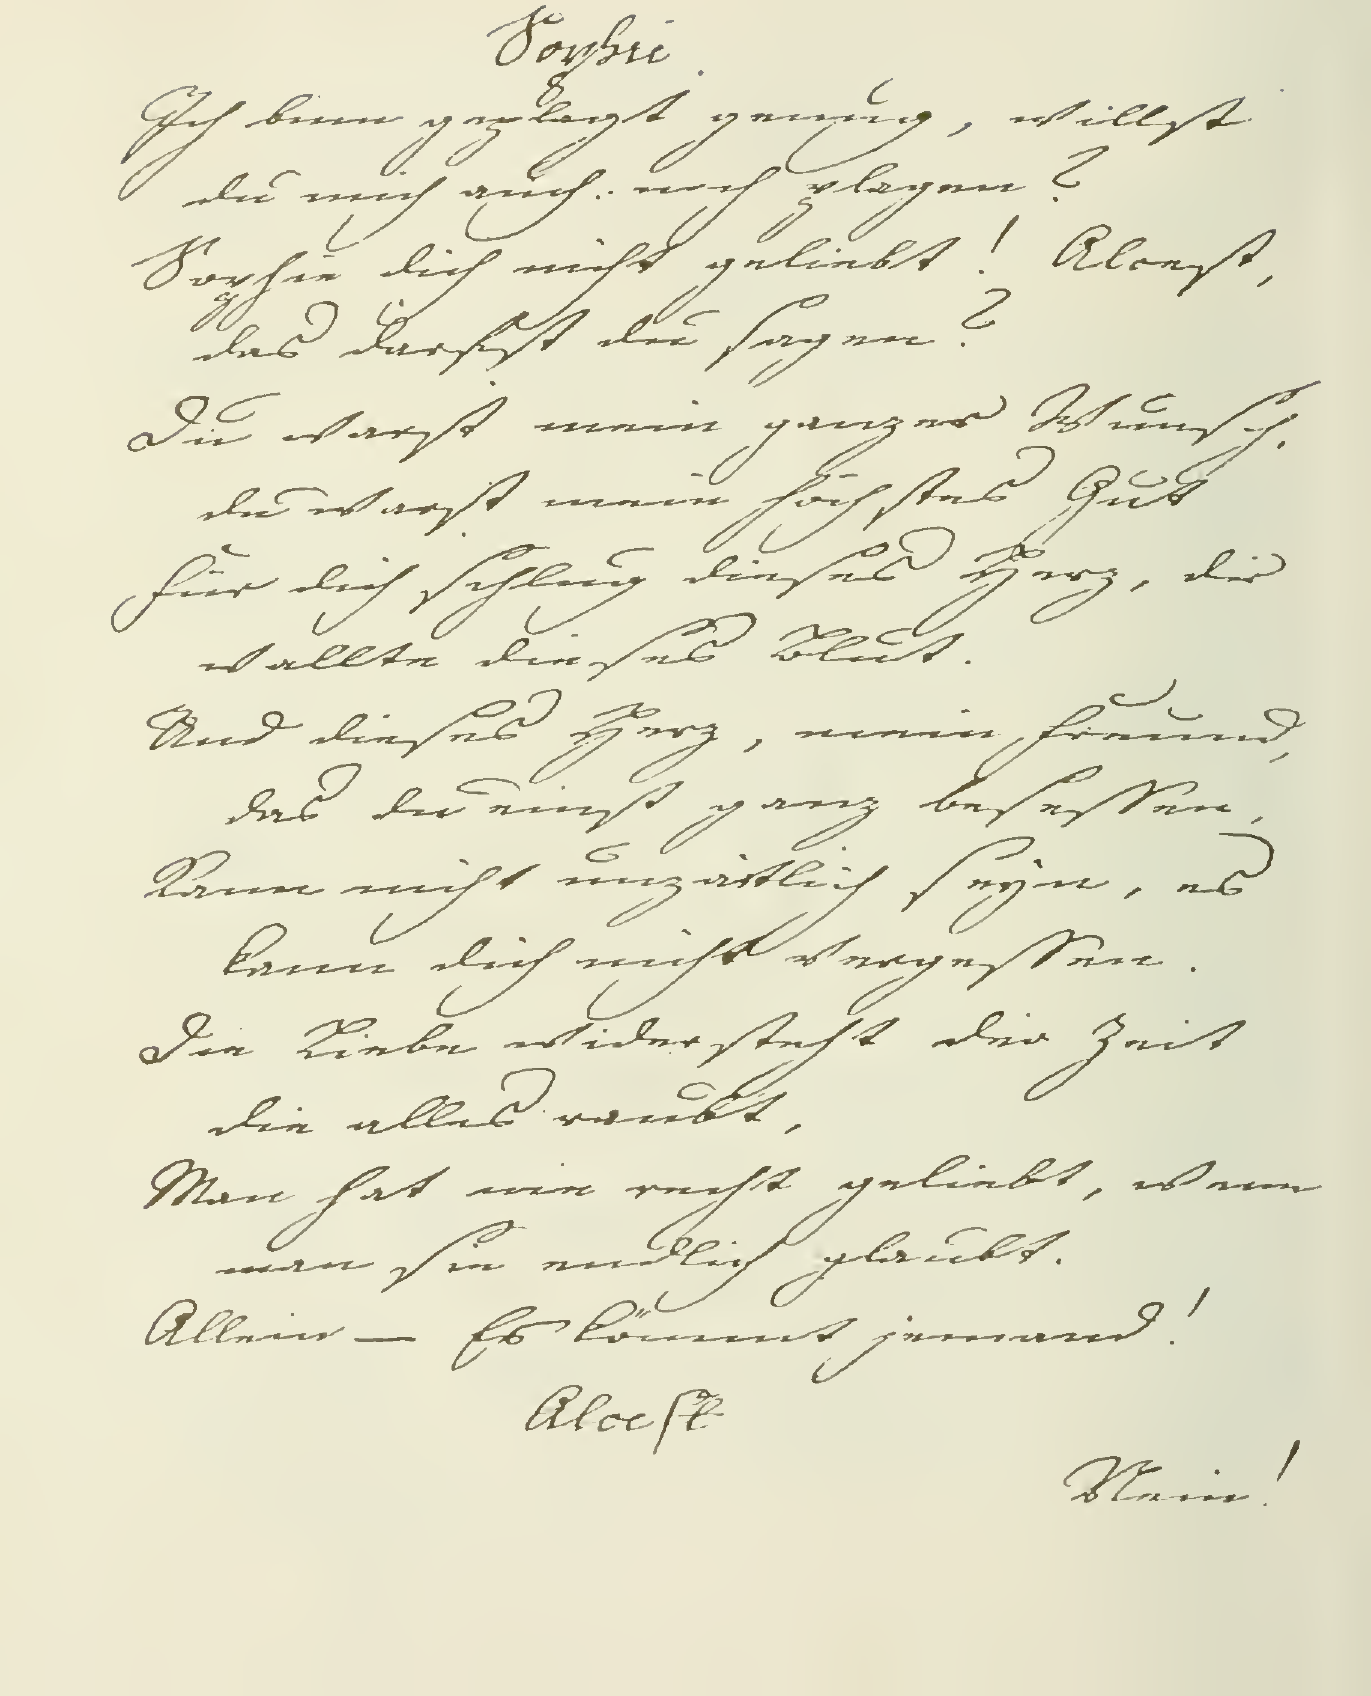 Sophie.
Ich binn geplagt genug, willst
du mich auch noch plagen?
Sophie dich nicht geliebt! Alcest,
das darfst du sagen?
Du warst mein ganzer Wunsch,
du warst mein höchstes Gut
Für dich schlug dieses Herz, dir
wallte dieses Blut.
Und dieses Herz, mein Freund,
das du einst ganz besessen,
Kann nicht unzärtlich seyn, es
kann dich nicht vergessen.
Die Liebe widersteht der Zeit
die alles raubt,
Man hat nie recht geliebt, wenn
man sie endlich glaubt.
Allein — Es kömmt jemand!
Alcest
Nein!